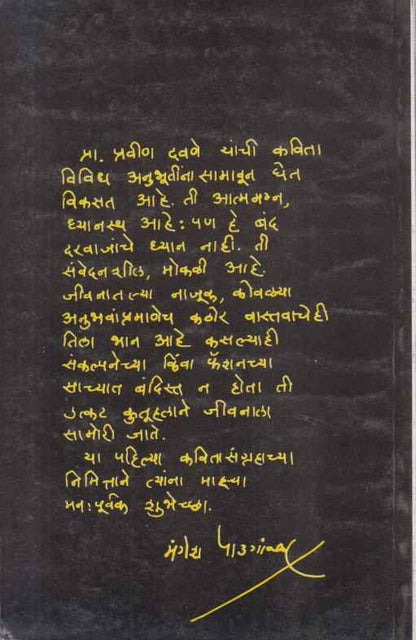 प्रा. प्रवीण दवणे यांची कविता
विविध अनुभूतींना सामावून घेत
विकसत आहे. ती आत्ममग्न,
ध्यानस्थ आहे: पण हे बंद
दरवाजांचे ध्यान नाही. ती
संवेदनशील, मोकळी आहे.
जीवनातल्या नाजूक, कोवळ्या
अनुभवांप्रमाणेच कठोर वास्तवाचेही
तिला भान आहे. कसल्याही
संकल्पनेच्या किंवा फॅशनच्या
साच्यात बंदिस्त न होता ती
उत्कट कुतूहलाने जीवनाला
सामोरी जाते.
या पहिल्या कवितासंग्रहाच्या
निमित्ताने त्यांना माझ्या
मनःपूर्वक शुभेच्छा.
मंगेश पाडगांवकर